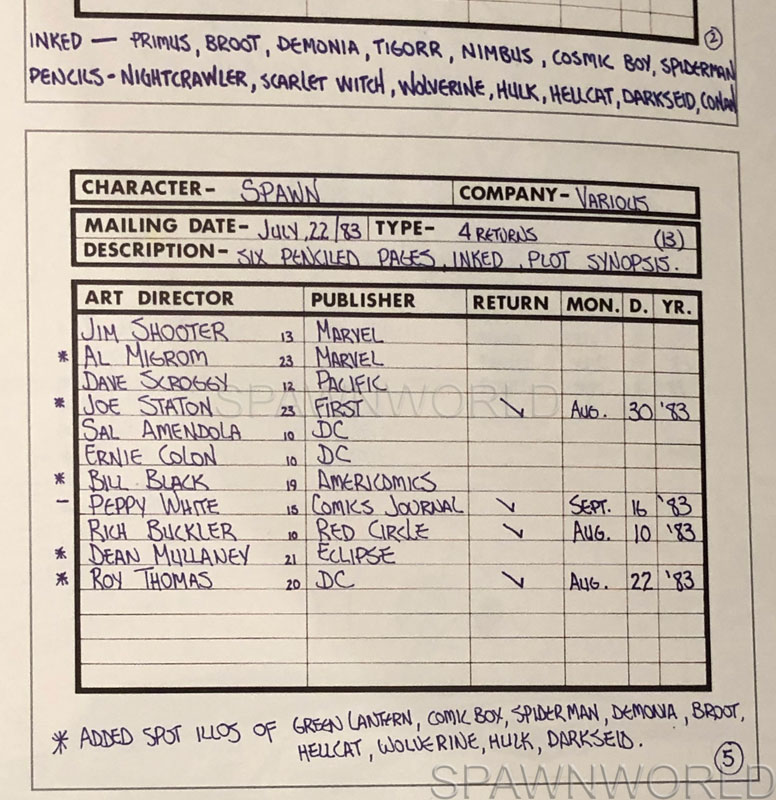 ②
INKED — PRIMUS, BROOT, DEMONIA, TIGORR, NIMBUS, COSMIC BOY, SPIDERMAN
PENCILS - NIGHTCRAWLER, SCARLET WITCH, WOLVERINE, HULK, HELLCAT, DARKSEID, CONAN
CHARACTER- SPAWN COMPANY- VARIOUS
MAILING DATE- JULY, 22/83 TYPE- 4 RETURNS (13)
DESCRIPTION- SIX PENCILED PAGES, INKED, PLOT SYNOPSIS.
ART DIRECTOR PUBLISHER RETURN MON. D. YR.
JIM SHOOTER 13 MARVEL
* AL MIGROM 23 MARVEL
DAVE SCROGGY 12 PACIFIC
* JOE STATON 23 FIRST ✓ AUG. 30 '83
SPAWNWORLD
SAL AMENDOLA 10 DC
ERNIE COLON 10 DC
* BILL BLACK 19 AMERICOMICS
- PEPPY WHITE 15 COMICS JOURNAL ✓ SEPT. 16 '83
RICH BUCKLER 10 RED CIRCLE ✓ AUG. 10 '83
* DEAN MULLANEY 21 ECLIPSE
* ROY THOMAS 20 DC ✓ AUG. 22 '83
* ADDED SPOT ILLOS OF GREEN LANTERN, COMIC BOX, SPIDERMAN, DEMONIA, BROOT,
HELLCAT, WOLVERINE, HULK, DARKSEID.
⑤
SPAWNWORLD